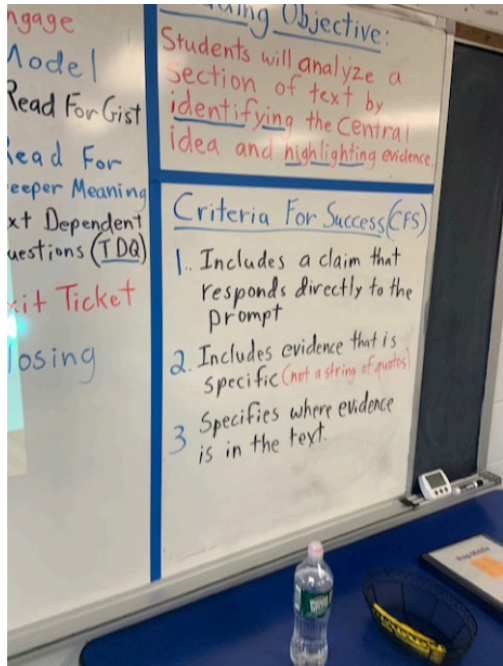 ngage
Model
Read For Gist
ead For
eeper Meaning
xt Dependent
uestions (TDQ)
xit Ticket
losing
Objective:
Students will analyze a
section of text by
identifying the Central
idea and highlighting evidence.
Criteria For Success (CFS)
1. Includes a claim that
responds directly to the
prompt
2. Includes evidence that is
specific (not a string of quotes)
3 Specifies where evidence
is in the text.